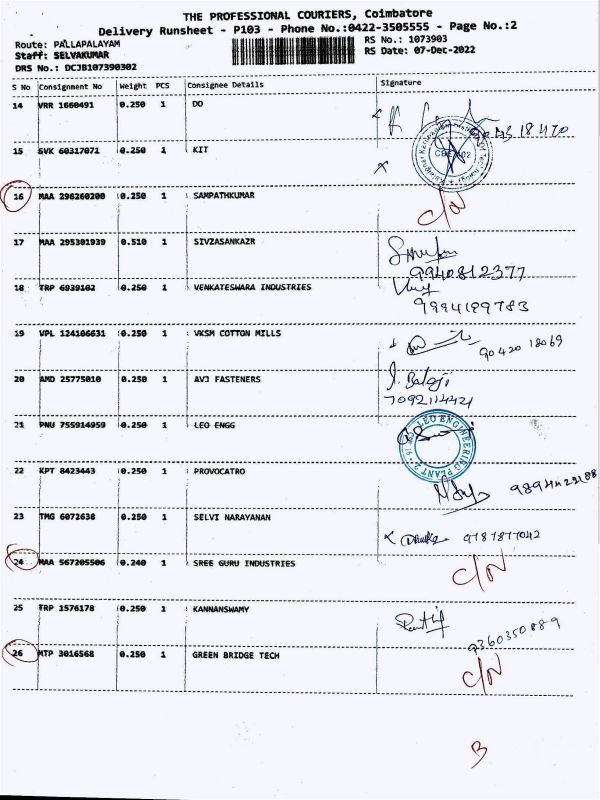 THE PROFESSIONAL COURIERS, Coimbatore
Delivery Runsheet - P103 - Phone No.:0422-3505555 - Page No.:2
Route: PALLAPALAYAM RS No.: 1073903
Staff: SELVAKUMAR RS Date: 07-Dec-2022
DRS No.: DCJB107390302
S No Consignment No Weight PCS Consignee Details Signature
14 VRR 1660491 0.250 1 DO
15 SVK 60317071 0.250 1 : KIT
16 MAA 296260200 0.250 1 : SAMPATHKUMAR C/N
17 MAA 295301939 0.510 1 : SIVZASANKAZR
9940812377
18 TRP 6939102 0.250 1 : VENKATESWARA INDUSTRIES
9994199783
19 VPL 124106631 0.250 1 : VKSM COTTON MILLS
90420 18069
20 AMD 25775010 0.250 1 : AVJ FASTENERS J. Balaji
7092114421
21 PNU 755914959 0.250 1 : LEO ENGG LEO ENGINEERING PLANT 2
22 KPT 8423443 0.250 1 : PROVOCATRO
23 TMG 6072638 0.250 1 : SELVI NARAYANAN 9787877042
24 MAA 567205506 0.240 1 : SREE GURU INDUSTRIES C/N
25 TRP 1576178 0.250 1 : KANNANSWAMY
9360350889
26 MTP 3016568 0.250 1 : GREEN BRIDGE TECH C/N
B